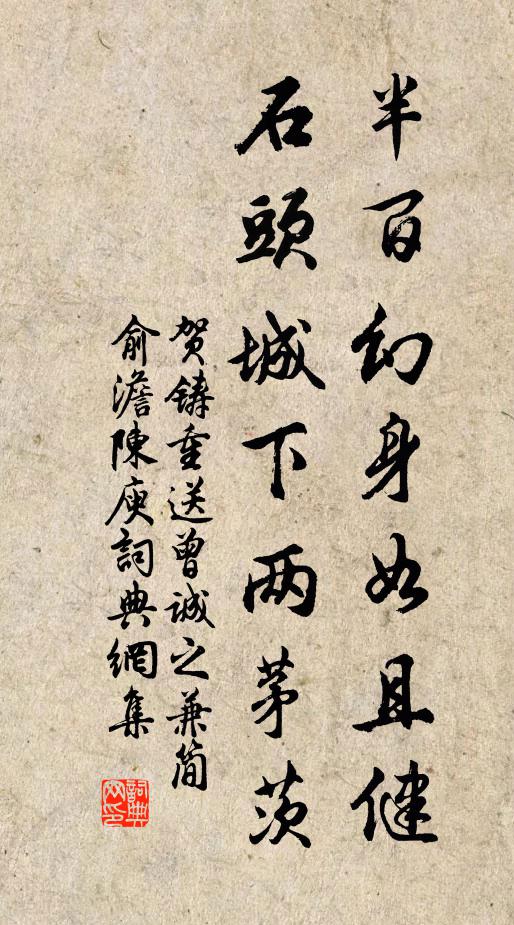 半百幻身如且健
石頭城下两茅茨
贺鑄重送曾诚之兼简
俞澹陳庾詞典網集
詞典网印